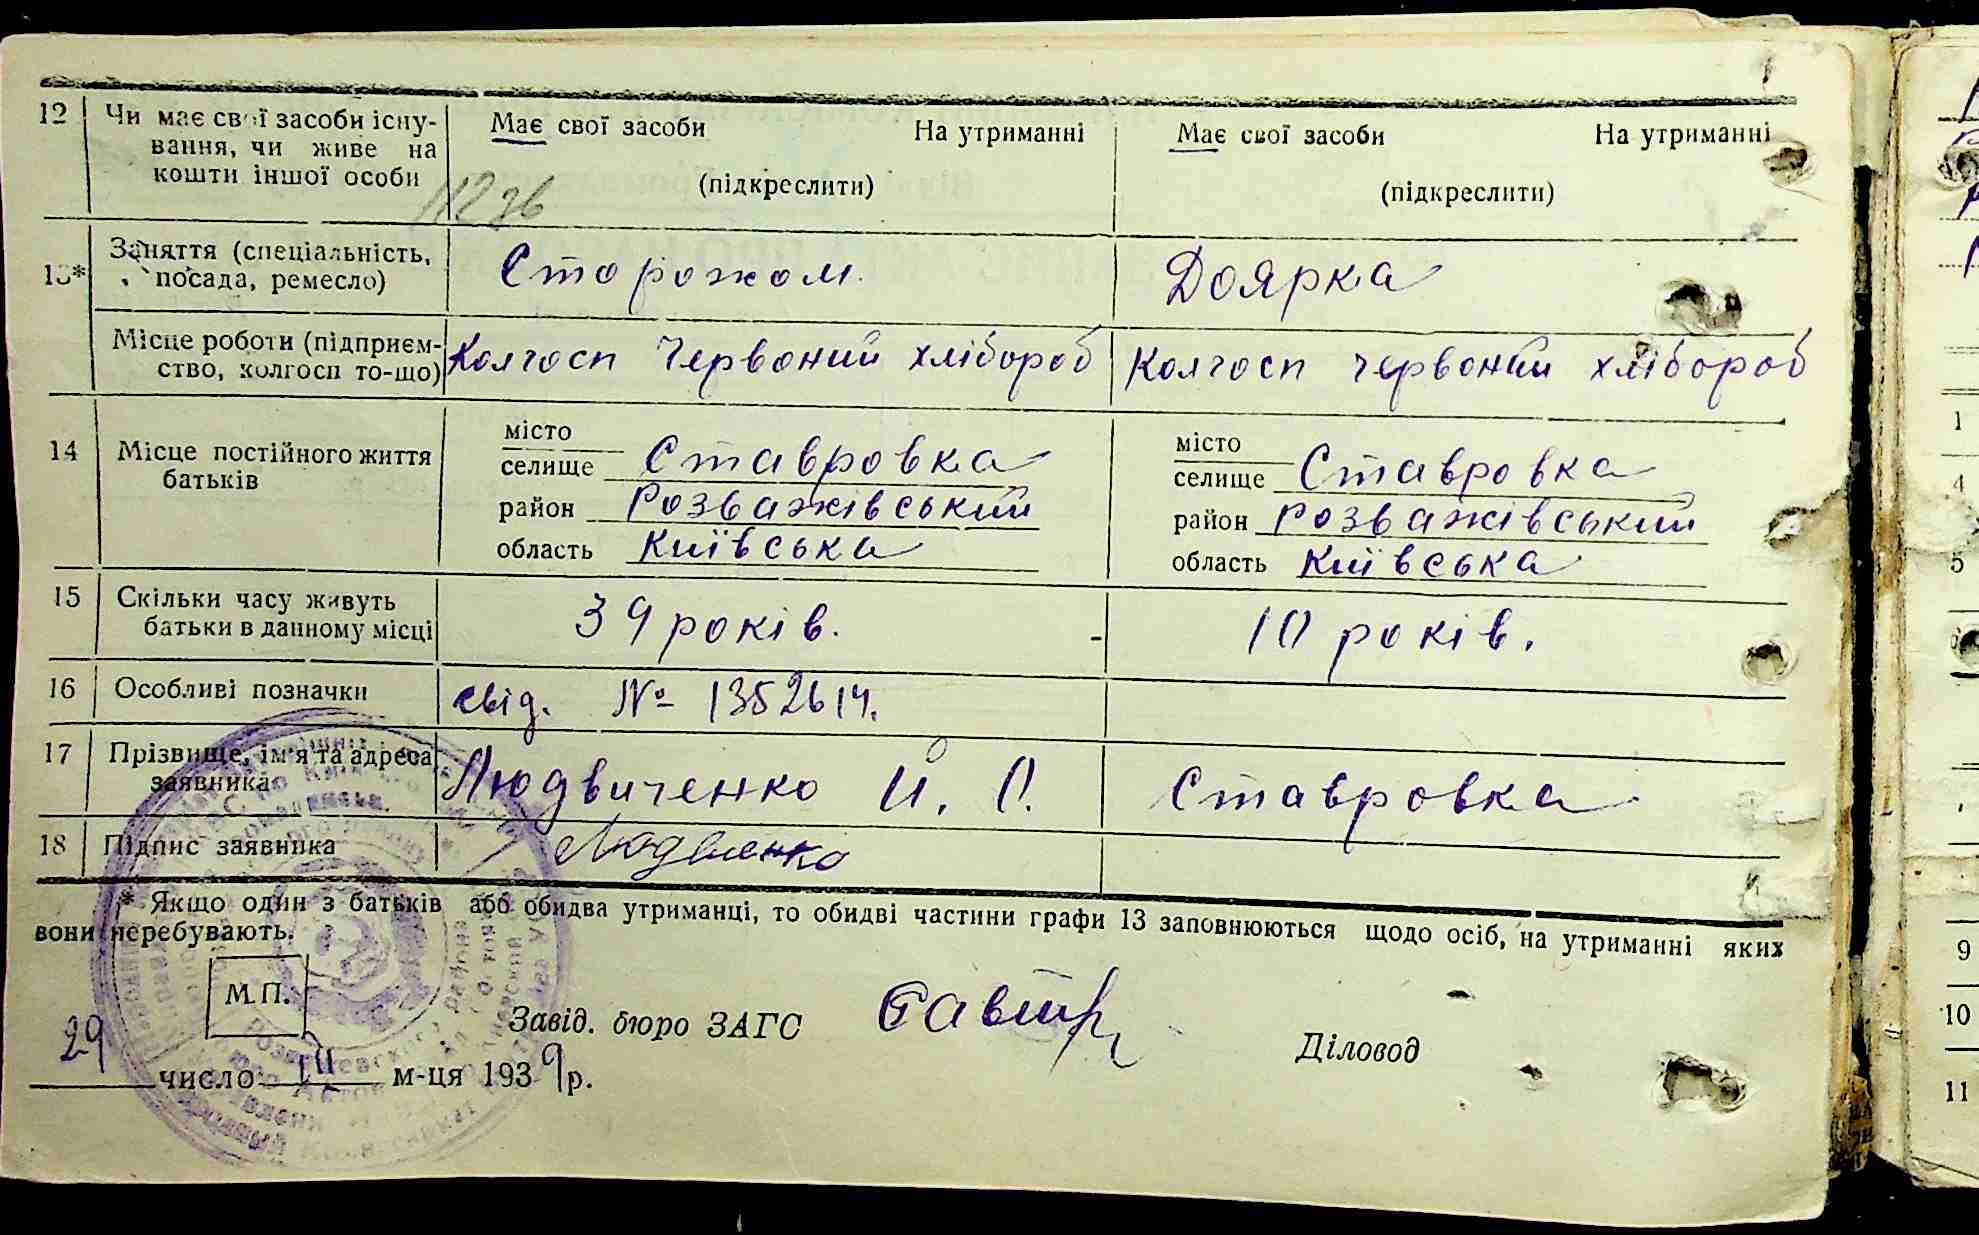 12 Чи має свої засоби існування, чи живе на кошти іншої особи Має свої засоби На утриманні Має свої засоби На утриманні
(підкреслити) (підкреслити)
13* Заняття (спеціальність, посада, ремесло) Сторожом. Доярка
Місце роботи (підприємство, колгосп то-що) Колгосп Червоний хлібороб Колгосп червоний хлібороб
14 Місце постійного життя батьків
місто
селище Ставровка
район Розважівський
область Київська
місто
селище Ставровка
район Розважівський
область Київська
15 Скільки часу живуть батьки в данному місці 39 років. - 10 років.
16 Особливі позначки свід. № 1352614.
17 Прізвище, ім'я та адреса заявника Людвиченко Й. О. Ставровка
18 Підпис заявника
* Якщо один з батьків або обидва утриманці, то обидві частини графи 13 заповнюються щодо осіб, на утриманні яких
вони перебувають.
М.П.
Завід. бюро ЗАГС
Діловод
29 число III м-ця 1939 р.
1
4
5
9
10
11